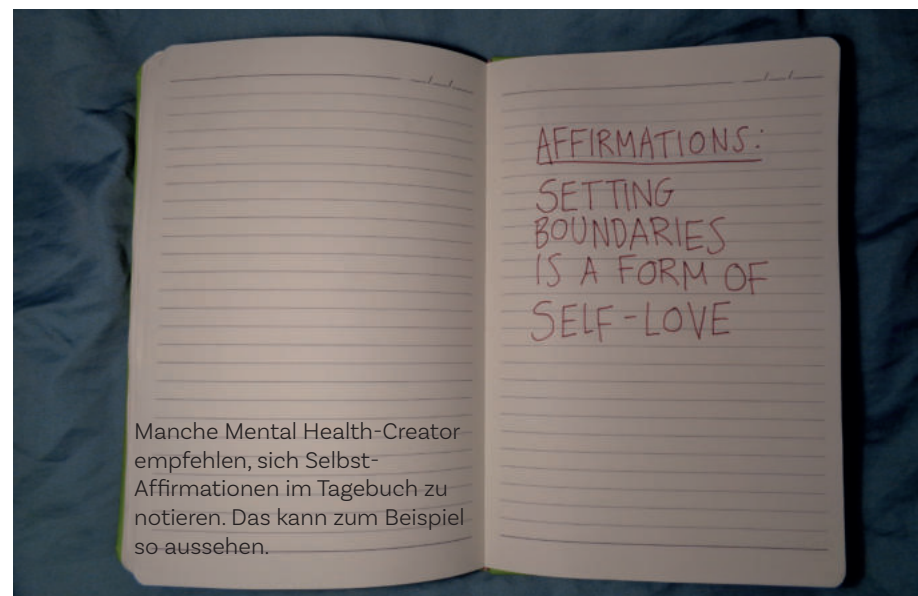 AFFIRMATIONS:
SETTING
BOUNDARIES
IS A FORM OF
SELF-LOVE
Manche Mental Health-Creator
empfehlen, sich Selbst-
Affirmationen im Tagebuch zu
notieren. Das kann zum Beispiel
so aussehen.